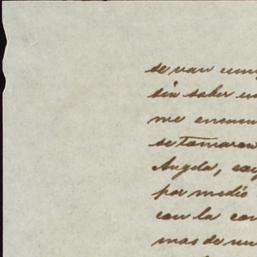 se van cum
sin saber un
me encuen
se tomaron
Angela, ca
por medio
con la con
mas de un